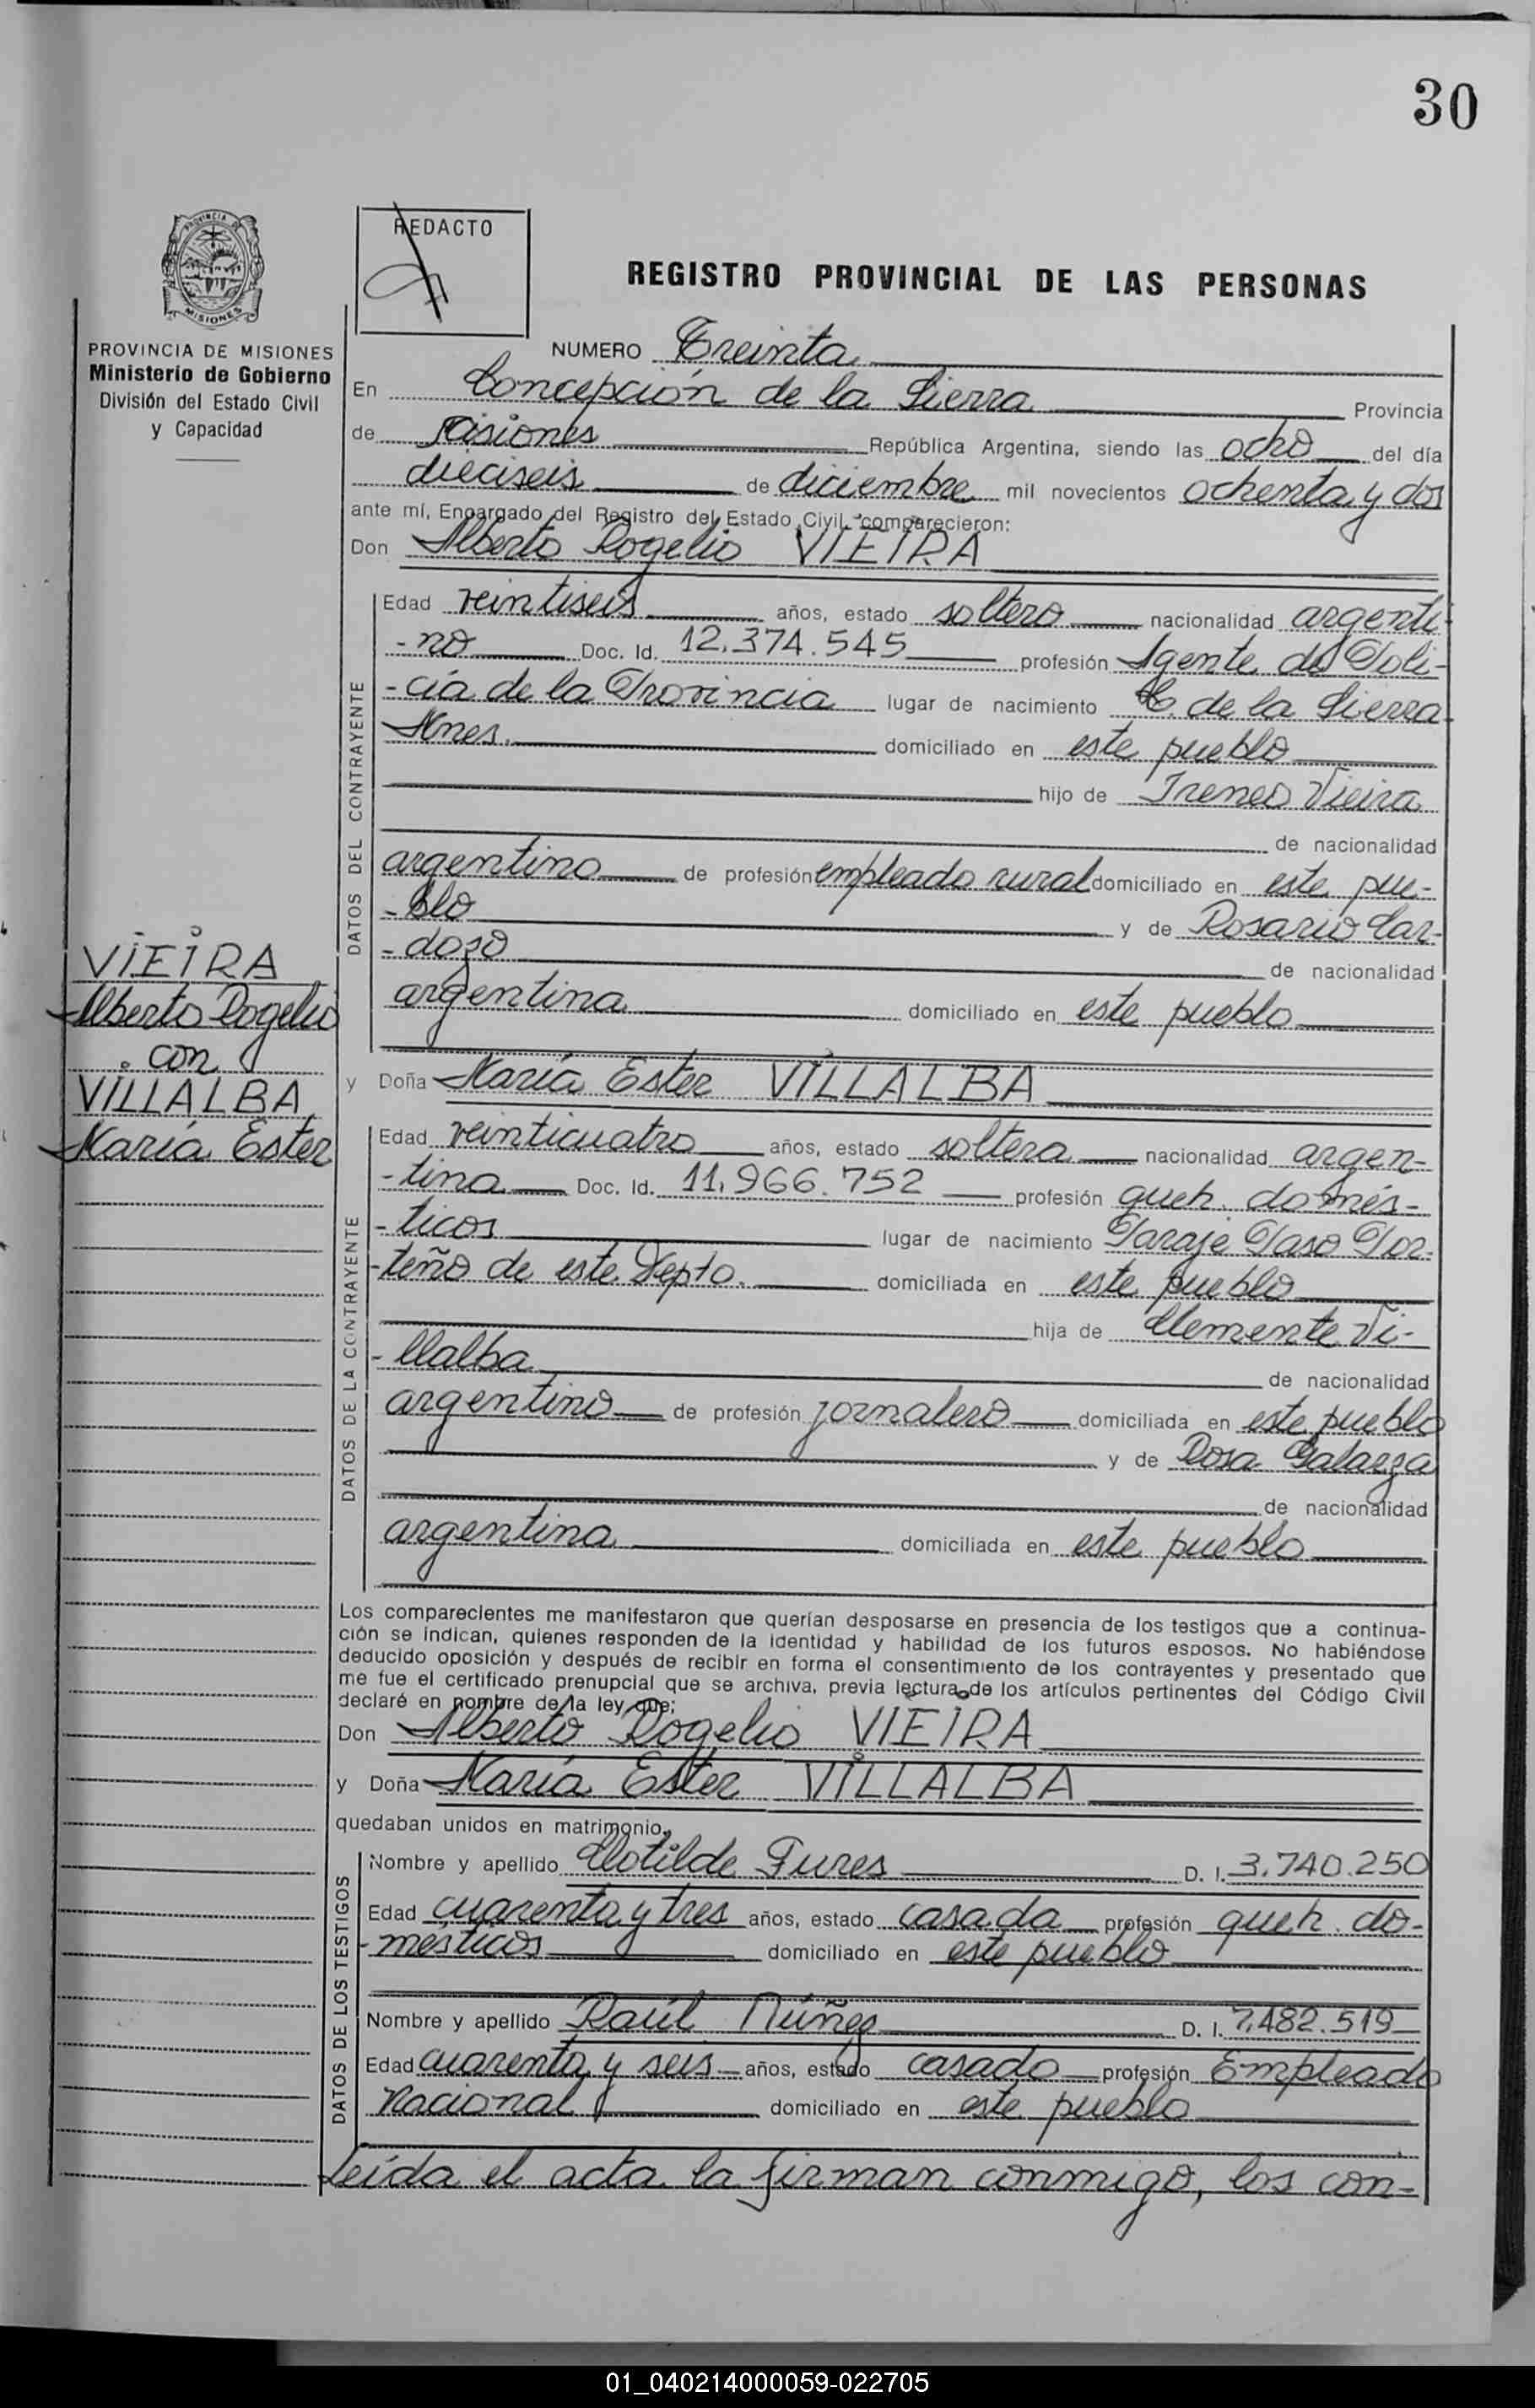 30
PROVINCIA DE
MISIONES
REDACTO
REGISTRO PROVINCIAL DE LAS PERSONAS
PROVINCIA DE MISIONES
Ministerio de Gobierno
División del Estado Civil
y Capacidad
NUMERO Treinta
En Concepción de la Sierra Provincia
de Misiones República Argentina, siendo las ocho del día
dieciseis de diciembre mil novecientos ochenta y dos
ante mí, Encargado del Registro del Estado Civil, comparecieron:
Don Alberto Rogelio VIEIRA
DATOS DEL CONTRAYENTE
Edad veintiseis años, estado soltero nacionalidad argenti-
-no Doc. Id. 12.374.545 profesión Agente de Poli-
-cía de la Provincia lugar de nacimiento C. de la Sierra
Mnes. domiciliado en este pueblo
hijo de Ireneo Vieira
de nacionalidad
argentino de profesión empleado rural domiciliado en este pue-
-blo y de Rosario Car-
-dozo de nacionalidad
argentina domiciliado en este pueblo
VIEIRA
Alberto Rogelio
con
VILLALBA,
María Ester
y Doña María Ester VILLALBA
DATOS DE LA CONTRAYENTE
Edad veinticuatro años, estado soltera nacionalidad argen-
-tina Doc. Id. 11.966.752 profesión queh. domés-
-ticos lugar de nacimiento Paraje Paso Por-
-teño de este Depto. domiciliada en este pueblo
hija de Clemente Vi-
-llalba de nacionalidad
argentino de profesión jornalero domiciliada en este pueblo
y de Rosa Galarza
de nacionalidad
argentina domiciliada en este pueblo
Los comparecientes me manifestaron que querían desposarse en presencia de los testigos que a continua-
ción se indican, quienes responden de la identidad y habilidad de los futuros esposos. No habiéndose
deducido oposición y después de recibir en forma el consentimiento de los contrayentes y presentado que
me fue el certificado prenupcial que se archiva, previa lectura de los artículos pertinentes del Código Civil
declaré en nombre de la ley que:
Don Alberto Rogelio VIEIRA
y Doña María Ester VILLALBA
quedaban unidos en matrimonio.
DATOS DE LOS TESTIGOS
Nombre y apellido Clotilde Fures D. I. 3.740.250
Edad cuarenta y tres años, estado casada profesión queh. do-
-mésticos domiciliado en este pueblo
Nombre y apellido Raúl Núñez D. I. 7.482.519
Edad cuarenta y seis años, estado casado profesión Empleado
Nacional domiciliado en este pueblo
Leída el acta la firman conmigo, los con-
01_040214000059-022705